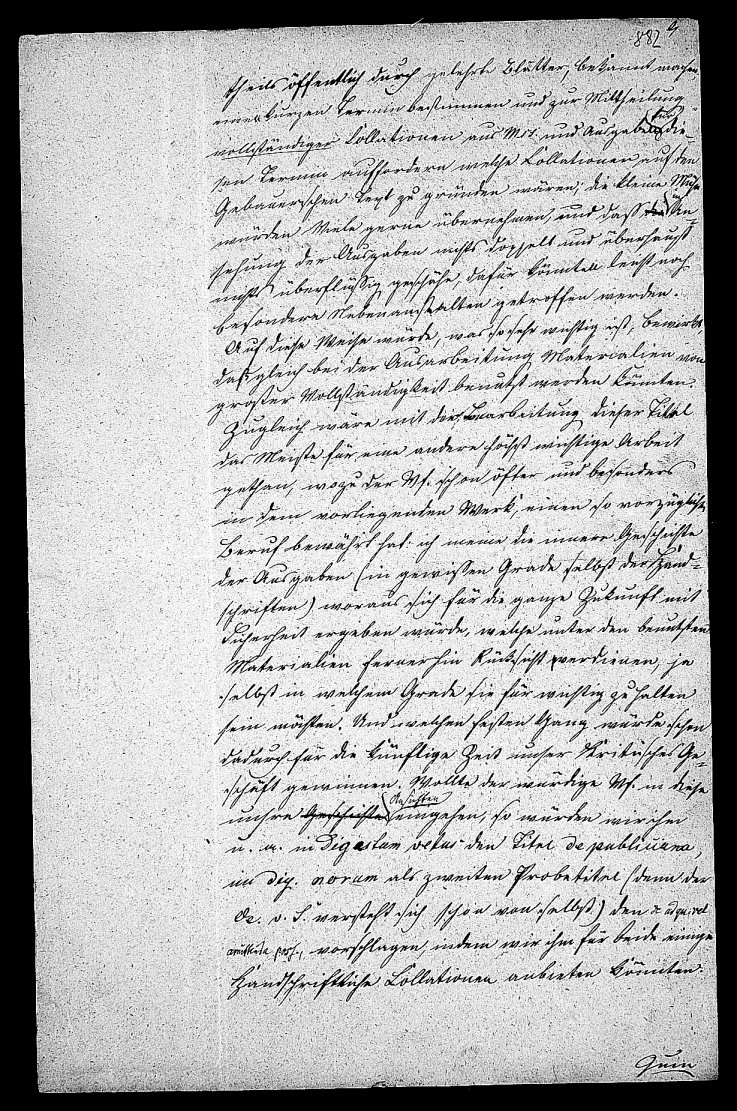 882
theils öffentlich durch gelehrte Blätter, bekannt machen,
einen kurzen Termin bestimmen und zur Mittheilung
vollständiger Collationen aus Mst. und Ausgaben die-
sen Termin auffordern welche Collationen auf den
Gebauerschen Text zu gründen wären; die kleine Mühe
würden Viele gerne übernehmen, und daß in An-
sehung der Ausgaben nichts doppelt und überhaupt
nichts überflüssig geschähe, dafür könnten leicht noch
besondere Nebenanstalten getroffen werden.
Auf diese Weise würde, was so sehr wichtig ist, bewirkt,
daß gleich bei der Ausarbeitung Materialien von
großer Vollständigkeit benutzt werden könnten.
Zugleich wäre mit der Bearbeitung dieser Titel
das Meiste für eine andere höchst wichtige Arbeit
gethan, wozu der Vf. schon öfter und besonders
in dem vorliegenden Werk, einen so vorzüglichen
Beruf bewährt hat: ich meine die innere Geschichte
der Ausgaben (in gewissen Grade selbst der Hand-
schriften) woraus sich für die ganze Zukunft mit
Sicherheit ergeben würde, welche unter den benutzten
Materialien fernerhin Rücksicht verdienen, ja
selbst in welchem Grade sie für wichtig zu halten
sein möchten. Und welchen festen Gang würde schon
dadurch für die künftige Zeit unser kritisches Ge-
schäft gewinnen. Wollte der würdige Vf. in diese
unsre Geschichte Ansichten eingehen, so würden wir ihm
u. a. in Digestum vetus den Titel de publiciana,
im dig. novum als zweiten Probetitel (denn der
de v. S. versteht sich schon von selbst) den de adqu. vel
amittenda poss., vorschlagen, indem wir ihm für beide einige
handschriftliche Collationen anbieten könnten.